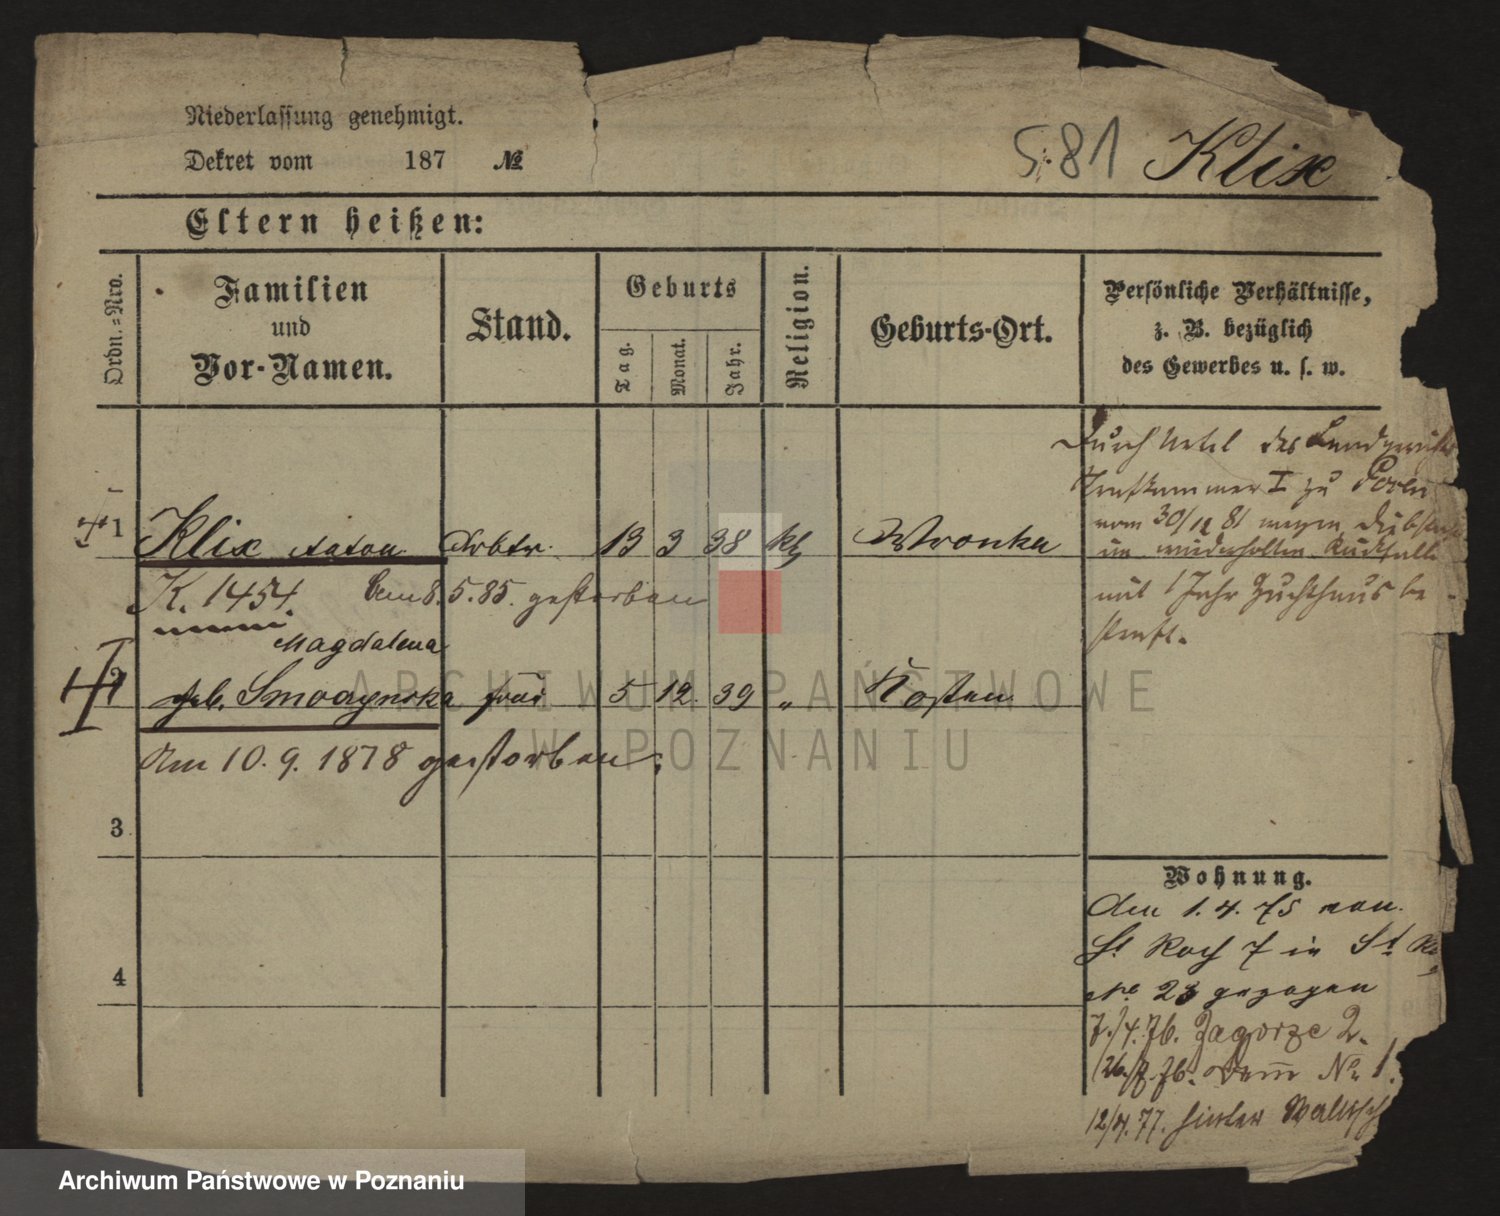 Niederlassung genehmigt.
Dekret vom 187 №
5.81 Klix
Eltern heißen:
Ordn.=Nro.
Familien
und
Vor-Namen.
Stand.
Geburts
Tag.
Monat.
Jahr.
Religion.
Geburts-Ort.
Persönliche Verhältnisse,
z. B. bezüglich
des Gewerbes u. s. w.
1 Klix Anton Arbtr. 13 3 38 kth Wronke
K. 1454. Am 8.5.85. gestorben
Magdalena
2 geb. Smoczynska frau 5 12 39 " Kosten
Am 10.9.1878 gestorben.
3
4
Durch Urteil des Landgerichts
Strafkammer I zu Posen
vom 30/11 81 wegen Diebstahl
im wiederholten Rückfalle
mit 1 Jahr Zuchthaus be-
straft.
Wohnung.
den 1.4.75 von
St Roch 7 in St Ro
No 23 gezogen
7./4.76. Zagorze 2.
26./7.76. Dom No 1.
12/4.77. hinter Wallisch
ARCHIWUM PAŃSTWOWE
W POZNANIU
Archiwum Państwowe w Poznaniu